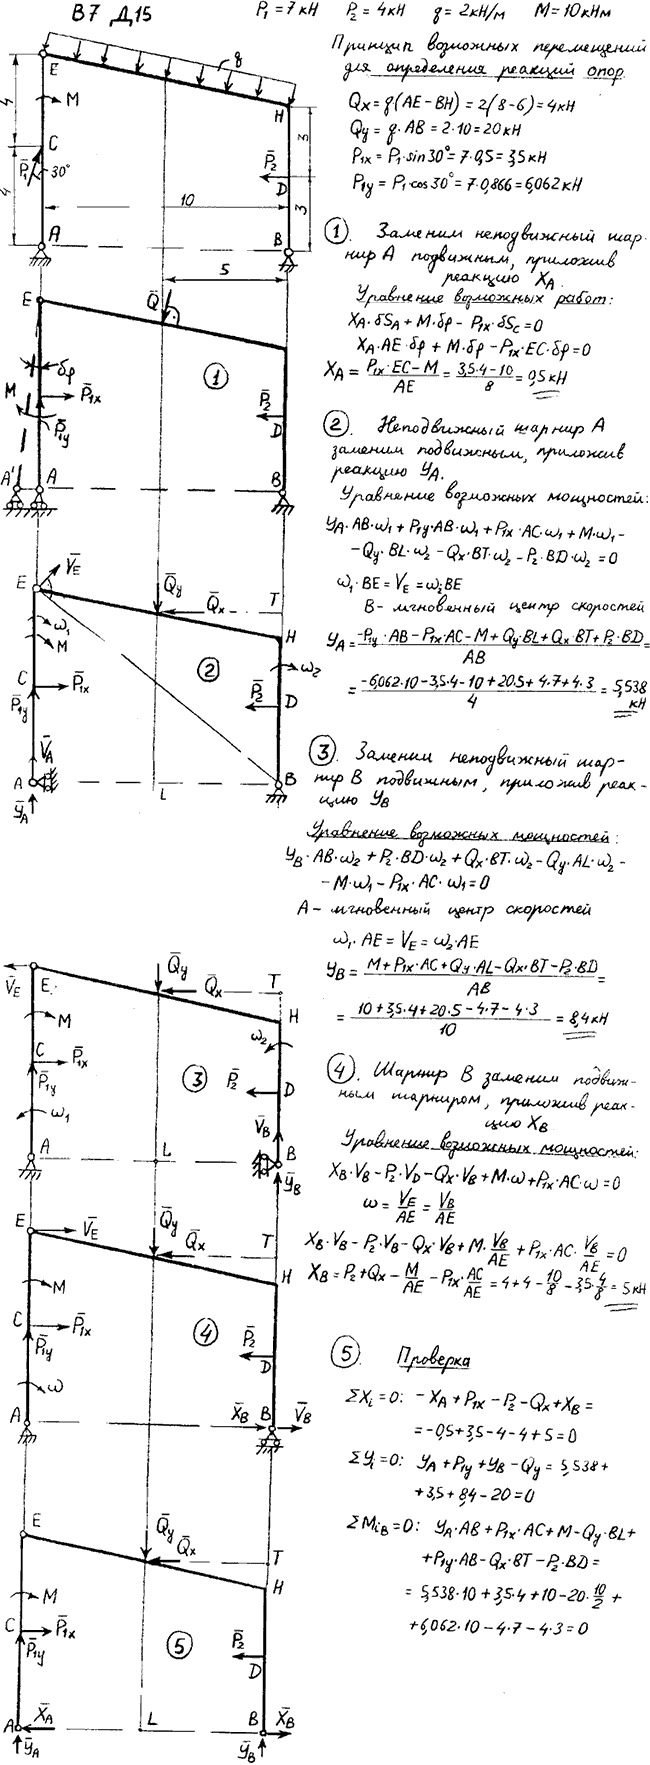 В7 Д15
P₁ = 7 кН P₂ = 4 кН q = 2 кН/м M = 10 кНм
Принцип возможных перемещений
для определения реакций опор.
Qx = q(AE − BH) = 2(8 − 6) = 4 кН
Qy = q · AB = 2 · 10 = 20 кН
P1x = P₁ · sin 30° = 7 · 0,5 = 3,5 кН
P1y = P₁ · cos 30° = 7 · 0,866 = 6,062 кН
q
E
M
4
C
P̅₁
30°
4
10
A
H
3
P̅₂
D
3
B
① . Заменим неподвижный шар-
нир А подвижным, приложив
реакцию XA.
Уравнение возможных работ:
XA · δSA + M · δφ − P1x · δSC = 0
XA · AE · δφ + M · δφ − P1x · EC · δφ = 0
XA = (P1x · EC − M)/AE = (3,5 · 4 − 10)/8 = 0,5 кН
5
E
Q̅
δφ
①
M
P̅1x
P̅1y
P̅₂
D
A'
A
B
② . Неподвижный шарнир А
заменим подвижным, приложив
реакцию YA.
Уравнение возможных мощностей:
YA · AB · ω₁ + P1y · AB · ω₁ + P1x · AC · ω₁ + M · ω₁ −
− Qy · BL · ω₂ − Qx · BT · ω₂ − P₂ · BD · ω₂ = 0
ω₁ · BE = VE = ω₂ · BE
В - мгновенный центр скоростей
YA = (−P1y · AB − P1x · AC − M + Qy · BL + Qx · BT + P₂ · BD)/AB =
= (−6,062 · 10 − 3,5 · 4 − 10 + 20·5 + 4 · 7 + 4 · 3)/4 = 5,538 кН
V̅E
E
Q̅y
Q̅x
T
ω₁
M
H
②
ω₂
C
P̅1x
P̅1y
P̅₂
D
V̅A
A
L
B
Y̅A
③ . Заменим неподвижный шар-
нир В подвижным, приложив реак-
цию YB
Уравнение возможных мощностей:
YB · AB · ω₂ + P₂ · BD · ω₂ + Qx · BT · ω₂ − Qy · AL · ω₂ −
− M · ω₁ − P1x · AC · ω₁ = 0
А - мгновенный центр скоростей
ω₁ · AE = VE = ω₂ · AE
YB = (M + P1x · AC + Qy · AL − Qx · BT − P₂ · BD)/AB =
= (10 + 3,5 · 4 + 20 · 5 − 4 · 7 − 4 · 3)/10 = 8,4 кН
V̅E
E
Q̅y
Q̅x
T
M
H
ω₂
C
P̅1x
P̅1y
③
P̅₂
D
ω₁
V̅B
A
L
B
Y̅B
④ . Шарнир В заменим подвиж-
ным шарниром, приложив реак-
цию XB
Уравнение возможных мощностей:
XB · VB − P₂ · VD − Qx · VB + M · ω + P1x · AC · ω = 0
ω = VE/AE = VB/AE
XB · VB − P₂ · VB − Qx · VB + M · VB/AE + P1x · AC · VB/AE = 0
XB = P₂ + Qx − M/AE − P1x · AC/AE = 4 + 4 − 10/8 − 3,5 · 4/8 = 5 кН
E
V̅E
Q̅y
Q̅x
T
M
H
C
P̅1x
P̅1y
④
P̅₂
D
ω
A
X̅B
B
V̅B
⑤ . Проверка
ΣXi = 0: −XA + P1x − P₂ − Qx + XB =
= −0,5 + 3,5 − 4 − 4 + 5 = 0
ΣYi = 0: YA + P1y + YB − Qy = 5,538 +
+ 3,5 + 8,4 − 20 = 0
ΣMiB = 0: YA · AB + P1x · AC + M − Qy · BL +
+ P1y · AB − Qx · BT − P₂ · BD =
= 5,538 · 10 + 3,5 · 4 + 10 − 20 · 10/2 +
+ 6,062 · 10 − 4 · 7 − 4 · 3 = 0
E
Q̅y
Q̅x
T
M
H
C
P̅1x
P̅1y
⑤
P̅₂
D
X̅A
A
L
B
X̅B
Y̅A
Y̅B